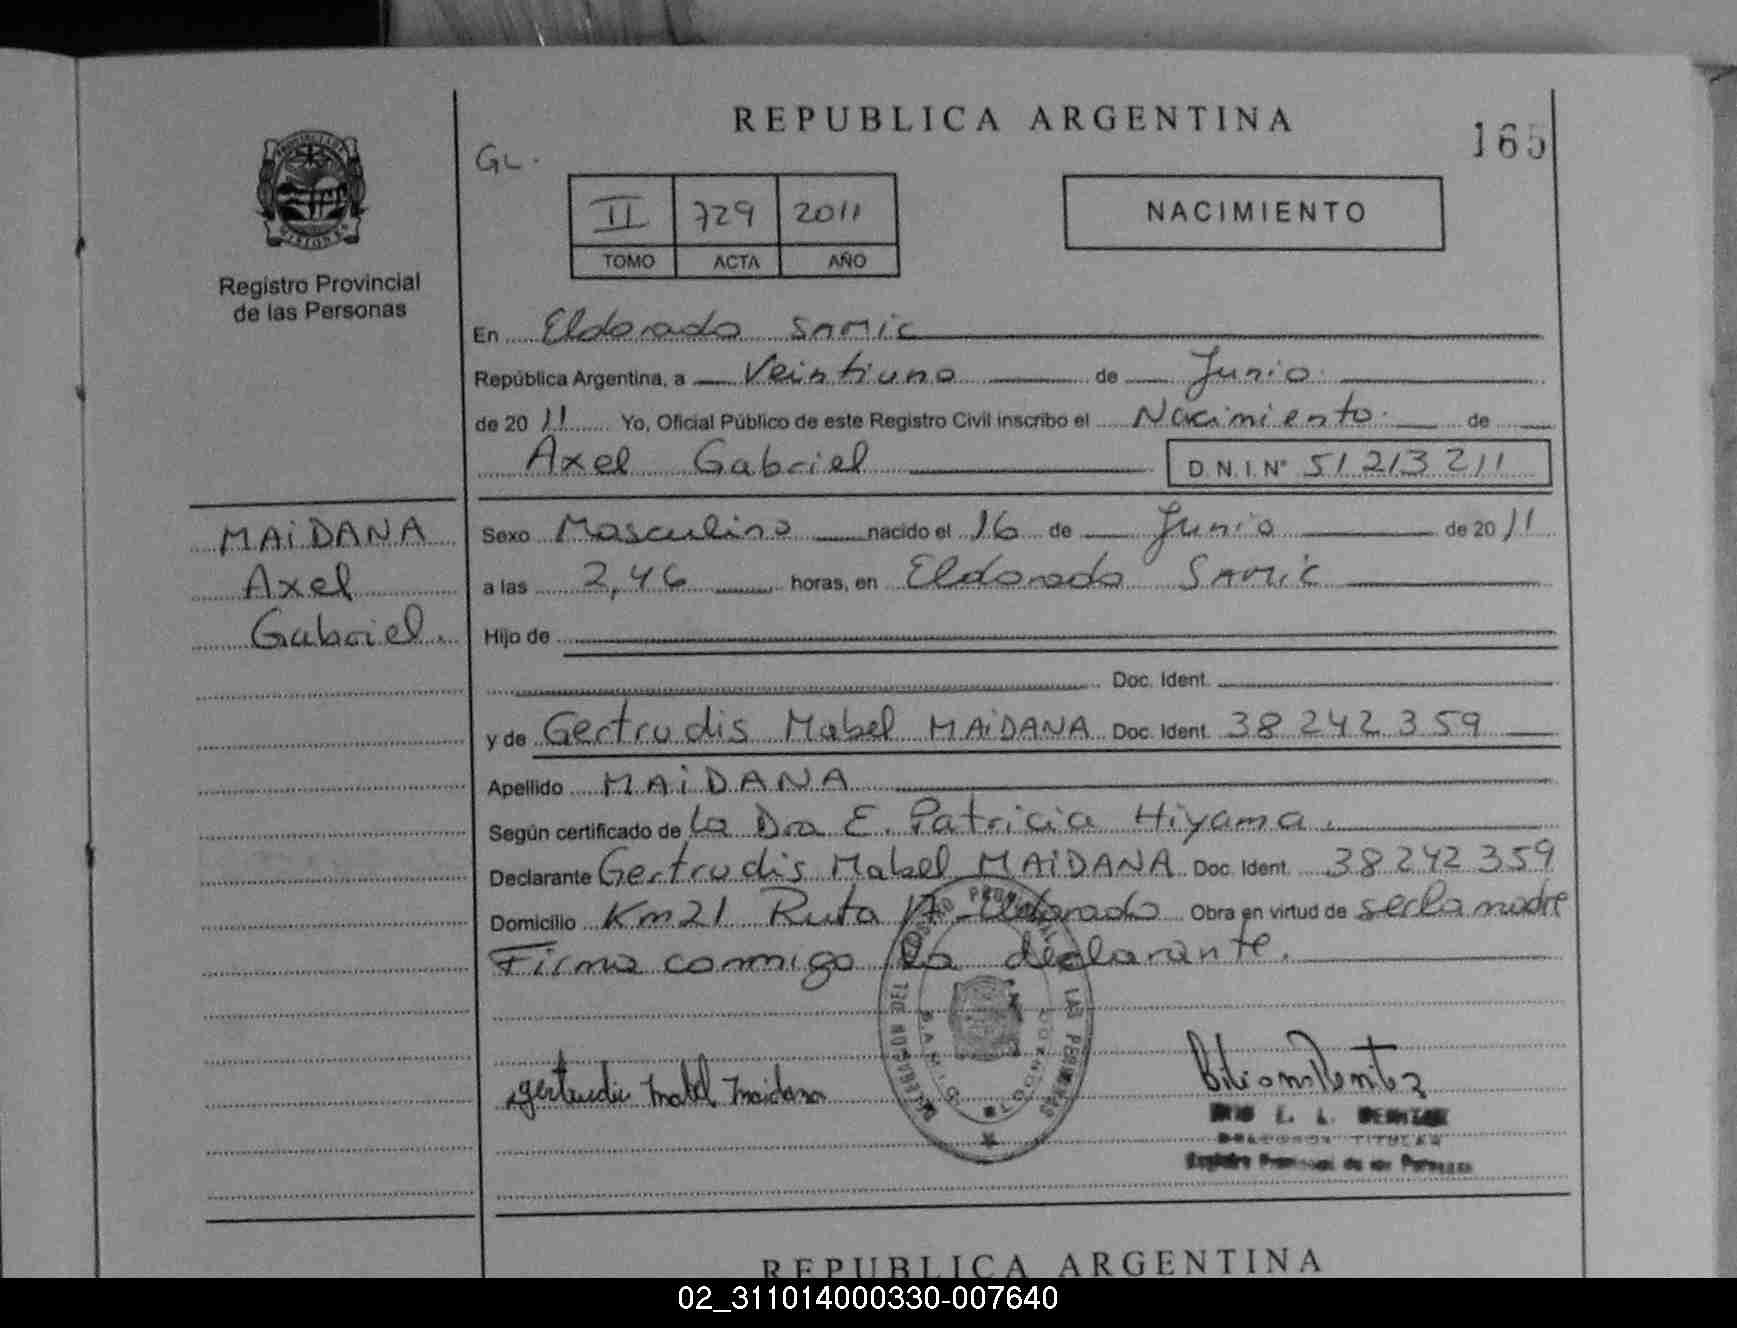 REPUBLICA ARGENTINA
165
GL.
II 729 2011
TOMO ACTA AÑO
NACIMIENTO
Registro Provincial
de las Personas
En Eldorado SAMIC
República Argentina, a Veintiuno de Junio
de 2011 Yo, Oficial Público de este Registro Civil inscribo el Nacimiento de
Axel Gabriel D.N.I. N° 51213211
MAIDANA
Axel
Gabriel.
Sexo Masculino nacido el 16 de Junio de 2011
a las 2,46 horas, en Eldorado SAMIC
Hijo de
Doc. Ident.
y de Gertrudis Mabel MAIDANA Doc. Ident. 38242359
Apellido MAIDANA
Según certificado de La Dra E. Patricia Hiyama.
Declarante Gertrudis Mabel MAIDANA Doc. Ident. 38242359
Domicilio Km21 Ruta 17-Eldorado Obra en virtud de ser la madre
Firma conmigo la declarante.
Gertrudis Mabel Maidana
REPUBLICA ARGENTINA
02_311014000330-007640